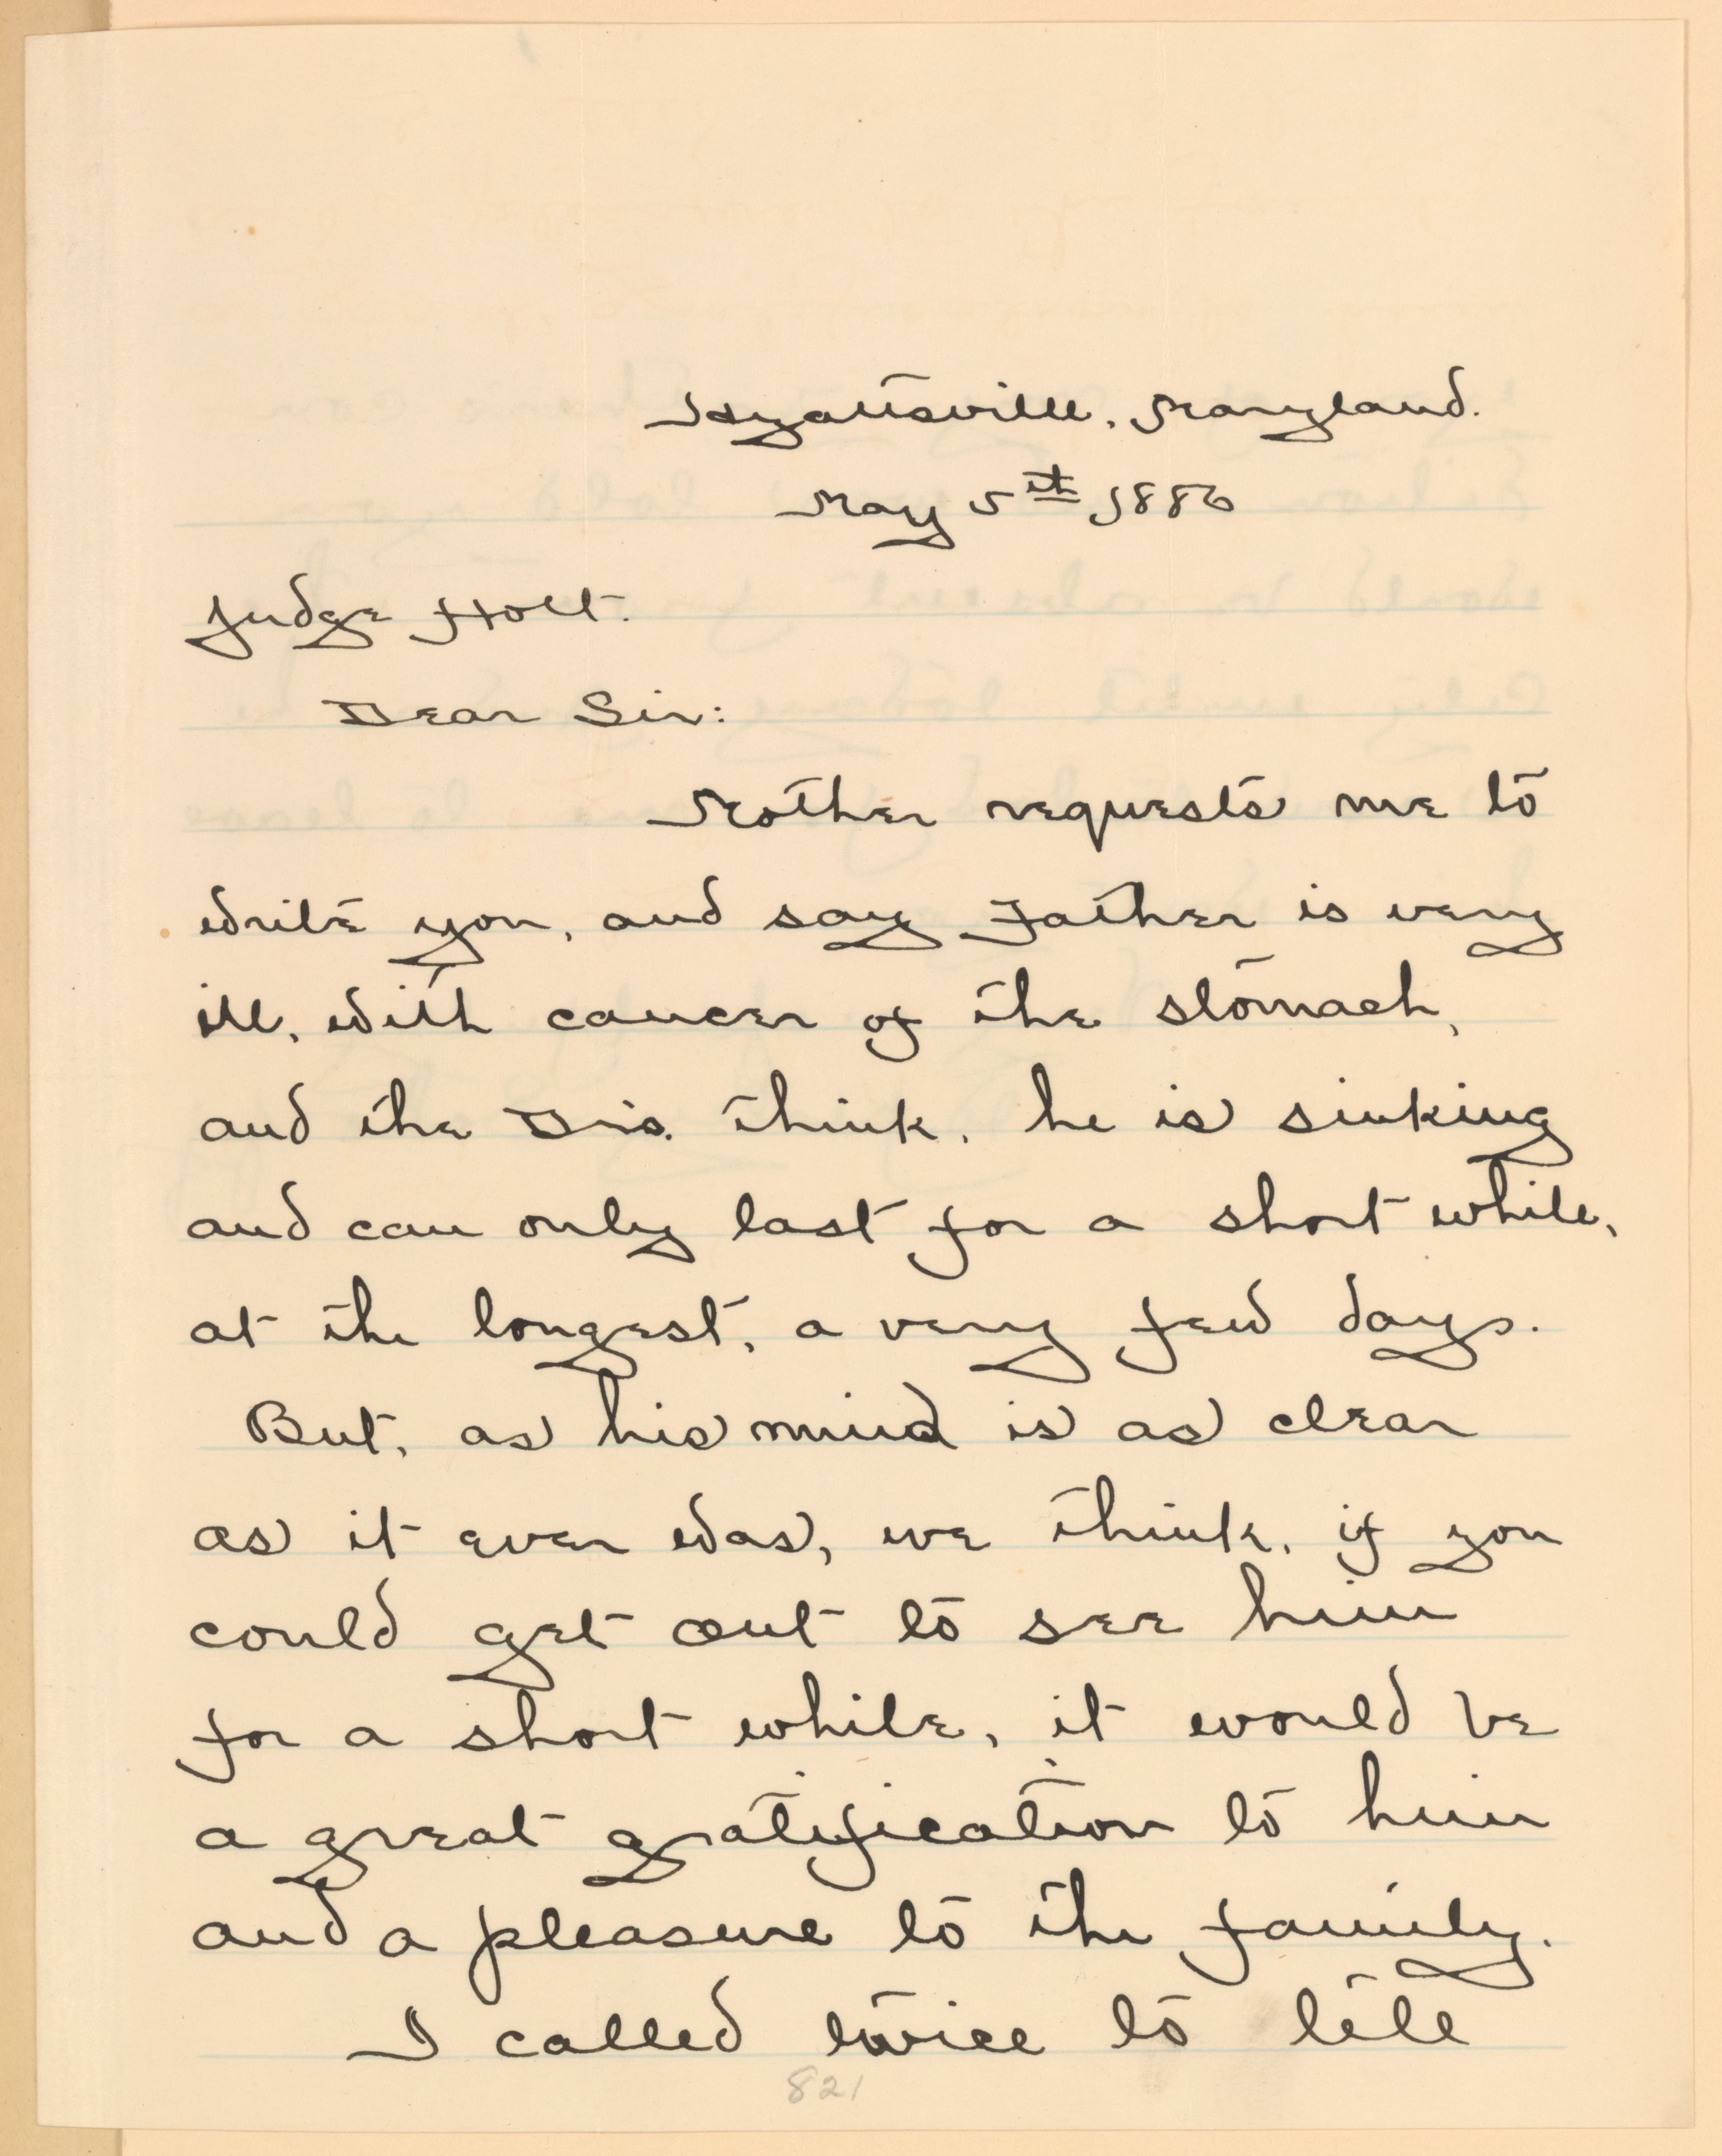 Hyattsville, Maryland.
May 5th 1886
Judge Holt.
Dear Sir:
Mother requests me to
write you, and say Father is very
ill, with cancer of the stomach,
and the Drs. think, he is sinking
and can only last for a short while,
at the longest, a very few days.
But, as his mind is as clear
as it ever was, we think, if you
could get out to see him
for a short while, it would be
a great gratification to him
and a pleasure to the family.
I called twice to tell
821